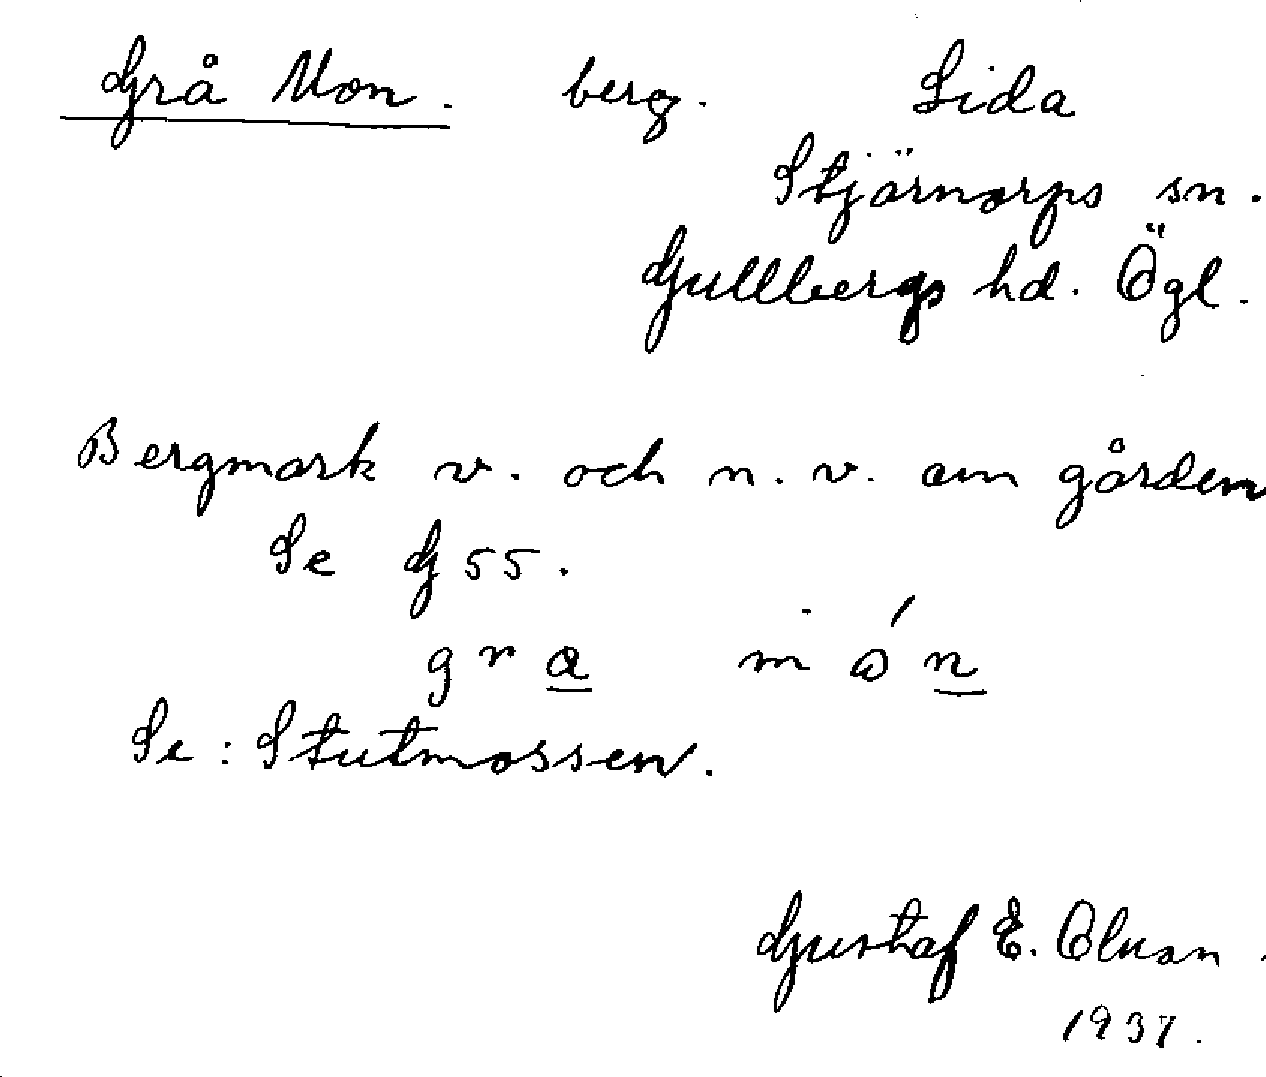 Grå Mon. berg. Lida
Stjärnorps sn.
Gullbergs hd. Ögl.
Bergmark v. och n.v. om gården
Se G 55.
gra món
Se: Stutmossen.
Gustaf E. Olson.
1937.